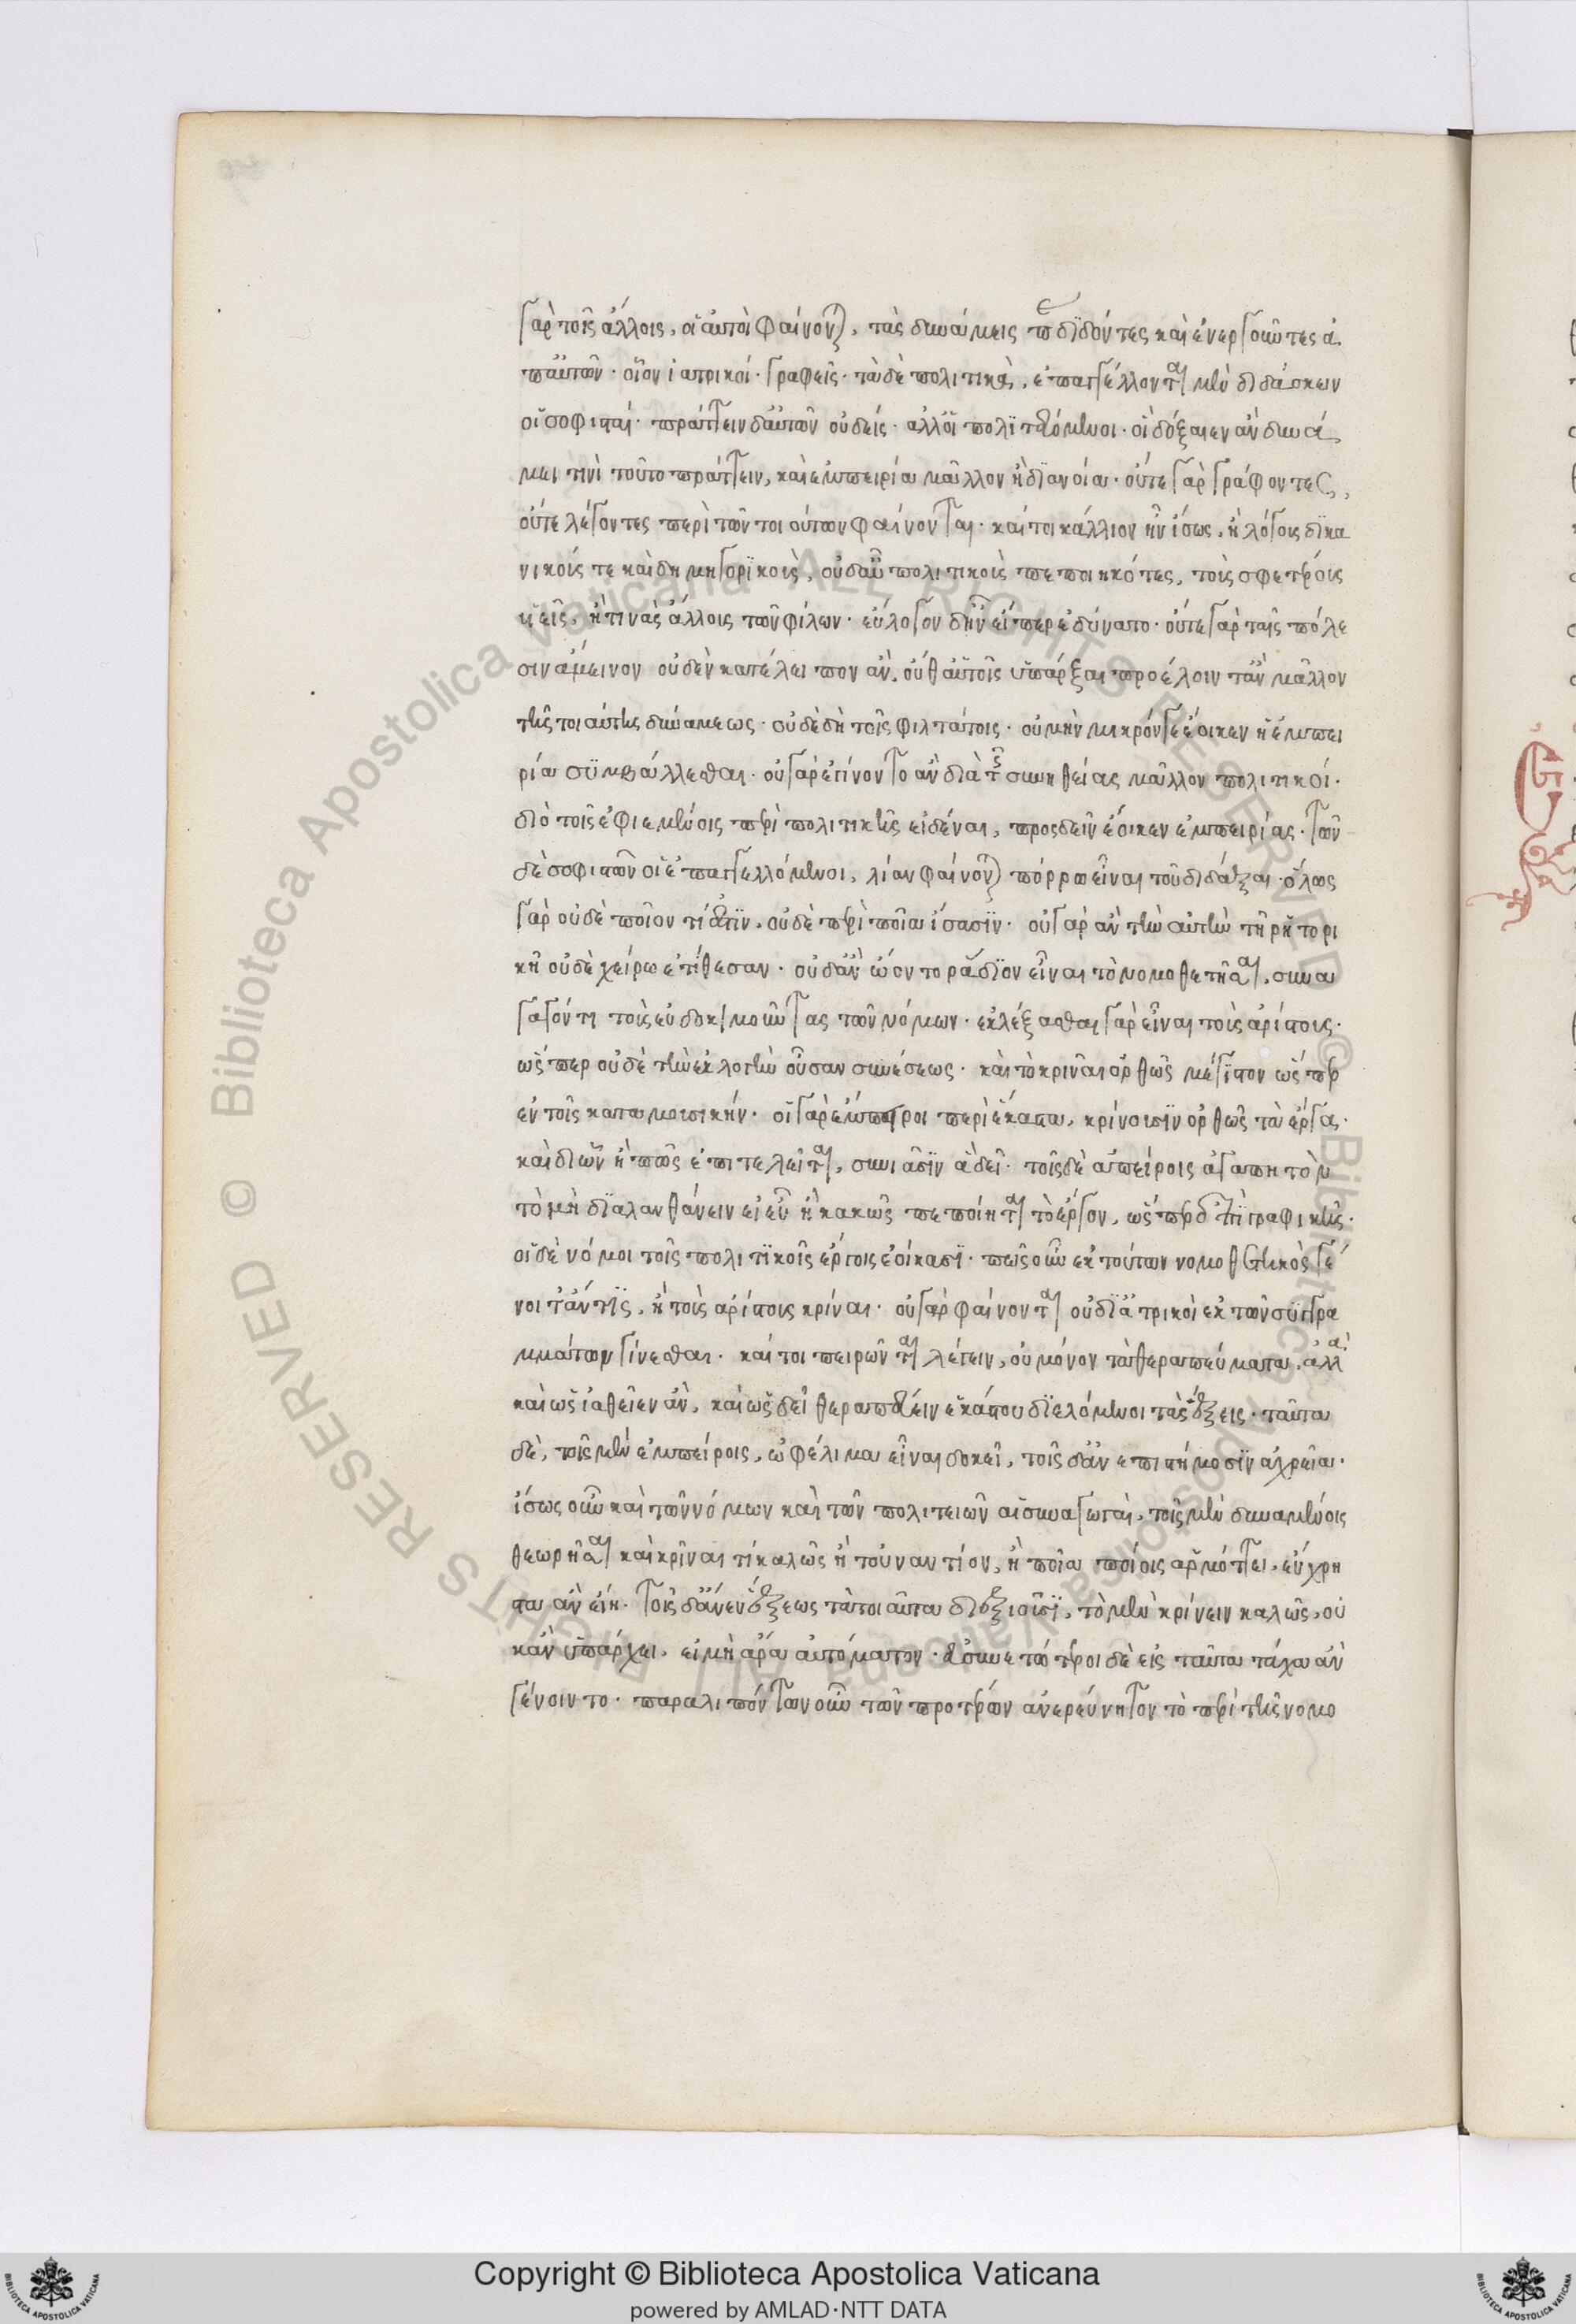 γὰρ τοῖς ἄλλοις, οἱ αὐτοὶ φαίνονται, τὰς δυνάμεις παραδιδόντες καὶ ἐνεργοῦντες ἀ
π' αὐτῶν· οἷον ἰατρικοί· γραφεῖς· τὰ δὲ πολιτικὰ, ἐπαγγέλλονται μὲν διδάσκειν
οἱ σοφισταί· πράττειν δ' αὐτῶν οὐδείς· ἀλλ' οἱ πολιτευόμενοι· οἳ δόξαιεν ἂν δυνά
μει τινὶ τοῦτο πράττειν, καὶ ἐμπειρία μᾶλλον ἢ διανοία· οὔτε γὰρ γράφοντες,
οὔτε λέγοντες περὶ τῶν τοιούτων φαίνονται· καίτοι κάλλιον ἦν ἴσως, ἢ λόγοις δικα
νικοῖς τε καὶ δημηγορικοῖς, οὐδ' αὖ πολιτικοὺς πεποιηκότες, τοὺς σφετέρους
υἱεῖς, ἤ τινας ἄλλους τῶν φίλων· εὔλογον δ' ἦν εἴπερ ἐδύναντο· οὔτε γὰρ ταῖς πόλε
σιν ἄμεινον οὐδὲν κατέλειπον ἂν, οὔθ' αὑτοῖς ὑπάρξαι προέλοιντ' ἂν μᾶλλον
τῆς τοιαύτης δυνάμεως· οὐδὲ δὴ τοῖς φιλτάτοις· οὐ μὴν μικρόν γε ἔοικεν ἡ ἐμπει
ρία συμβάλλεσθαι· οὐ γὰρ ἐγίνοντο ἂν διὰ τῆς συνηθείας μᾶλλον πολιτικοί·
διὸ τοῖς ἐφιεμένοις περὶ πολιτικῆς εἰδέναι, προσδεῖν ἔοικεν ἐμπειρίας· τῶν
δὲ σοφιστῶν οἱ ἐπαγγελλόμενοι, λίαν φαίνονται πόρρω εἶναι τοῦ διδάξαι· ὅλως
γὰρ οὐδὲ ποῖόν τί ἐστιν, οὐδὲ περὶ ποῖα ἴσασιν· οὐ γὰρ ἂν τὴν αὐτὴν τῇ ῥητορι
κῇ οὐδὲ χείρω ἐτίθεσαν· οὐδ' ἂν ᾤοντο ῥάδιον εἶναι τὸ νομοθετῆσαι, συνα
γαγόντι τοὺς εὐδοκιμοῦντας τῶν νόμων· ἐκλέξασθαι γὰρ εἶναι τοὺς ἀρίστους·
ὥσπερ οὐδὲ τὴν ἐκλογὴν οὖσαν συνέσεως· καὶ τὸ κρῖναι ὀρθῶς μέγιστον ὥσπερ
ἐν τοῖς κατὰ μουσικήν· οἱ γὰρ ἔμπειροι περὶ ἕκαστα, κρίνουσιν ὀρθῶς τὰ ἔργα·
καὶ δι' ὧν ἢ πῶς ἐπιτελεῖται, συνιᾶσιν ἃ δεῖ· τοῖς δὲ ἀπείροις ἀγαπητὸν
τὸ μὴ διαλανθάνειν εἰ εὖ ἢ κακῶς πεποίηται τὸ ἔργον, ὥσπερ ἐπὶ γραφικῆς·
οἱ δὲ νόμοι τοῖς πολιτικοῖς ἔργοις ἐοίκασι· πῶς οὖν ἐκ τούτων νομοθετικὸς γέ
νοιτ' ἄν τις, ἢ τοὺς ἀρίστους κρίναι· οὐ γὰρ φαίνονται οὐδ' ἰατρικοὶ ἐκ τῶν συγγρα
μμάτων γίνεσθαι· καίτοι πειρῶνταί λέγειν, οὐ μόνον τὰ θεραπεύματα, ἀλλὰ
καὶ ὡς ἰαθεῖεν ἂν, καὶ ὡς δεῖ θεραπεύειν ἑκάστου διελόμενοι τὰς ἕξεις· ταῦτα
δὲ, τοῖς μὲν ἐμπείροις, ὠφέλιμα εἶναι δοκεῖ, τοῖς δ' ἀνεπιστήμοσιν ἀχρεῖα·
ἴσως οὖν καὶ τῶν νόμων καὶ τῶν πολιτειῶν αἱ συναγωγαὶ, τοῖς μὲν δυναμένοις
θεωρῆσαι καὶ κρῖναι τί καλῶς ἢ τοὐναντίον, ἢ ποῖα ποίοις ἁρμόττει, εὔχρη
στα ἂν εἴη· τοῖς δ' ἄνευ ἕξεως τὰ τοιαῦτα διεξιοῦσι, τὸ μὲν κρίνειν καλῶς, οὐ
κ ἂν ὑπάρχει, εἰ μὴ ἄρα αὐτόματον· εὐσυνετώτεροι δὲ εἰς ταῦτα τάχα ἂν
γένοιντο· παραλιπόντων οὖν τῶν προτέρων ἀνερεύνητον τὸ περὶ τῆς νομο
Copyright © Biblioteca Apostolica Vaticana
powered by AMLAD·NTT DATA
© Biblioteca Apostolica Vaticana ALL RIGHTS RESERVED © Biblioteca Apostolica Vaticana ALL RIGHTS RESERVED